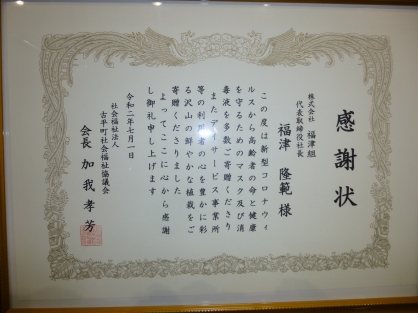 感謝状
株式会社 福津組
代表取締役社長
福津 隆範 様
この度は新型コロナウィ
ルスから高齢者の命と健康
を守るためのマスク及び消
毒液を多数ご寄贈くださり
またデイサービス事業所
等の利用者の心を豊かに彩
る沢山の鮮やかな植栽をご
寄贈くださりました
よってここに心から感謝
し御礼申し上げます
令和二年七月一日
社会福祉法人
古平町社会福祉協議会
会長 加我 孝芳